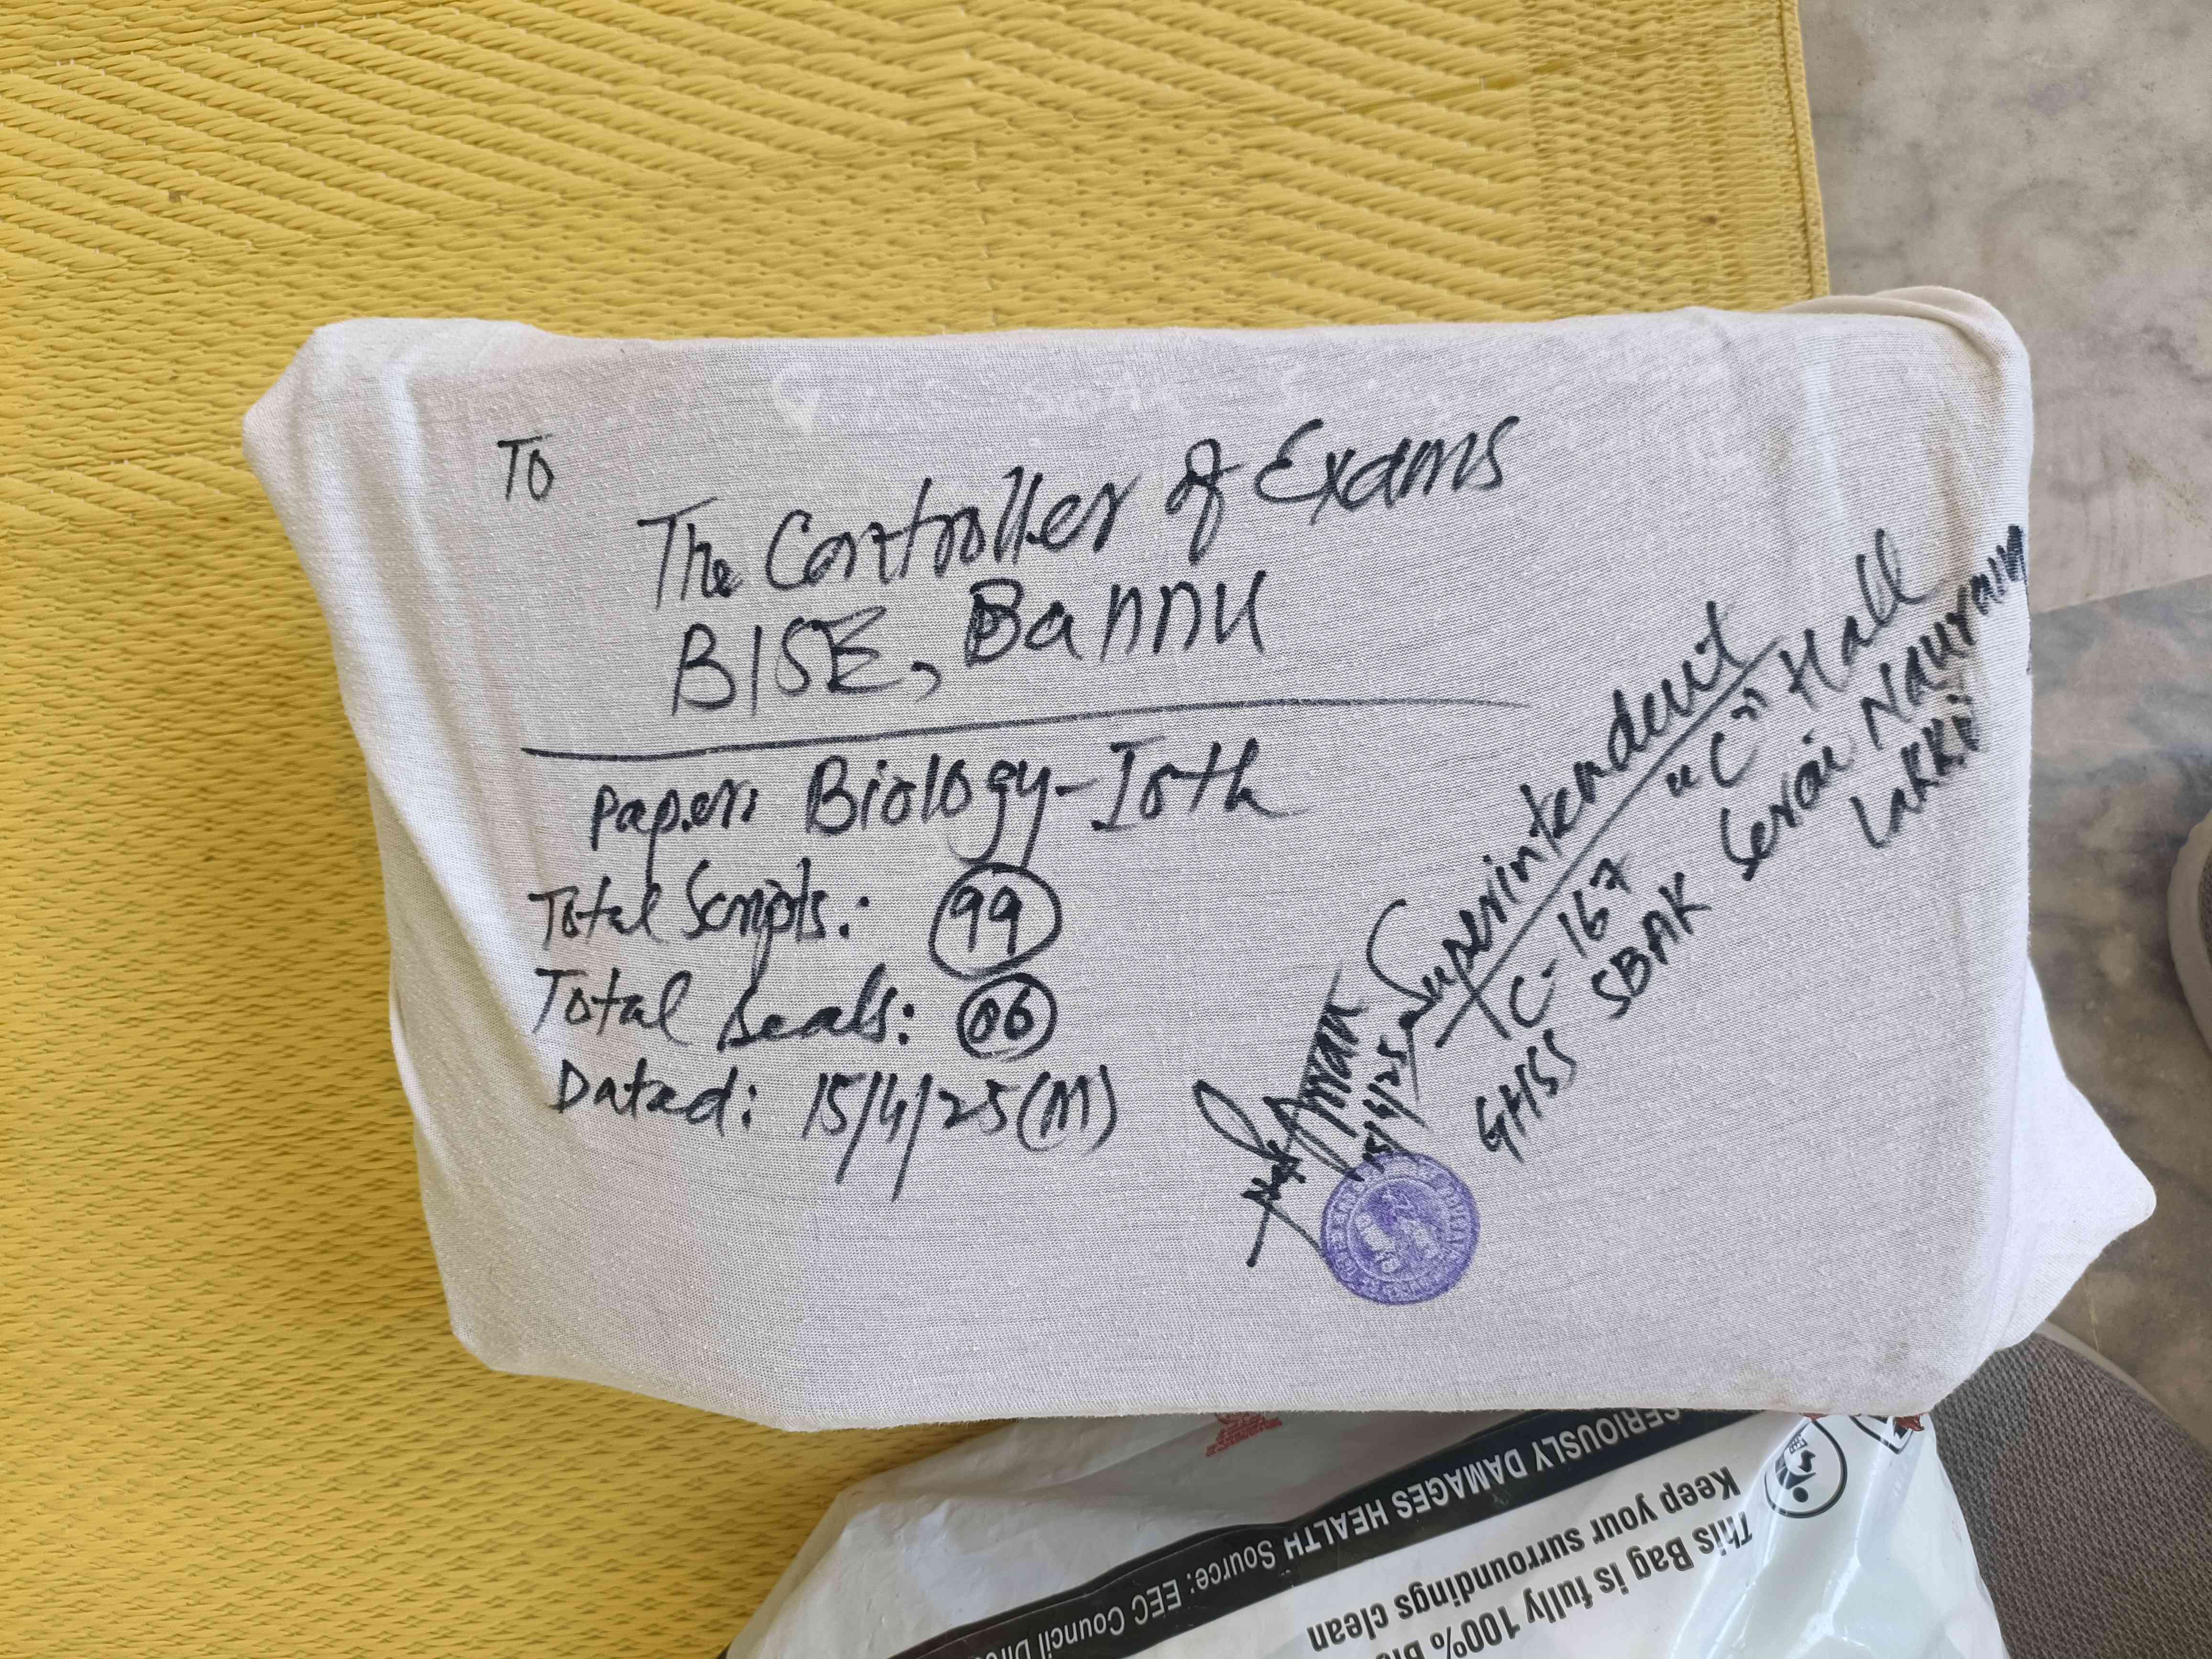 To
The Controller of Exams
BISE, Bannu
Paper: Biology-10th
Total Scripts: 99
Total Seals: 06
Dated: 15/4/25(M)
15/4/25
Superintendent
C-167 "C" Hall
GHSS SBAK Serai Naurang
Lakki
SERIOUSLY DAMAGES HEALTH Source: EEC Council
This Bag is fully 100%
Keep your surroundings clean